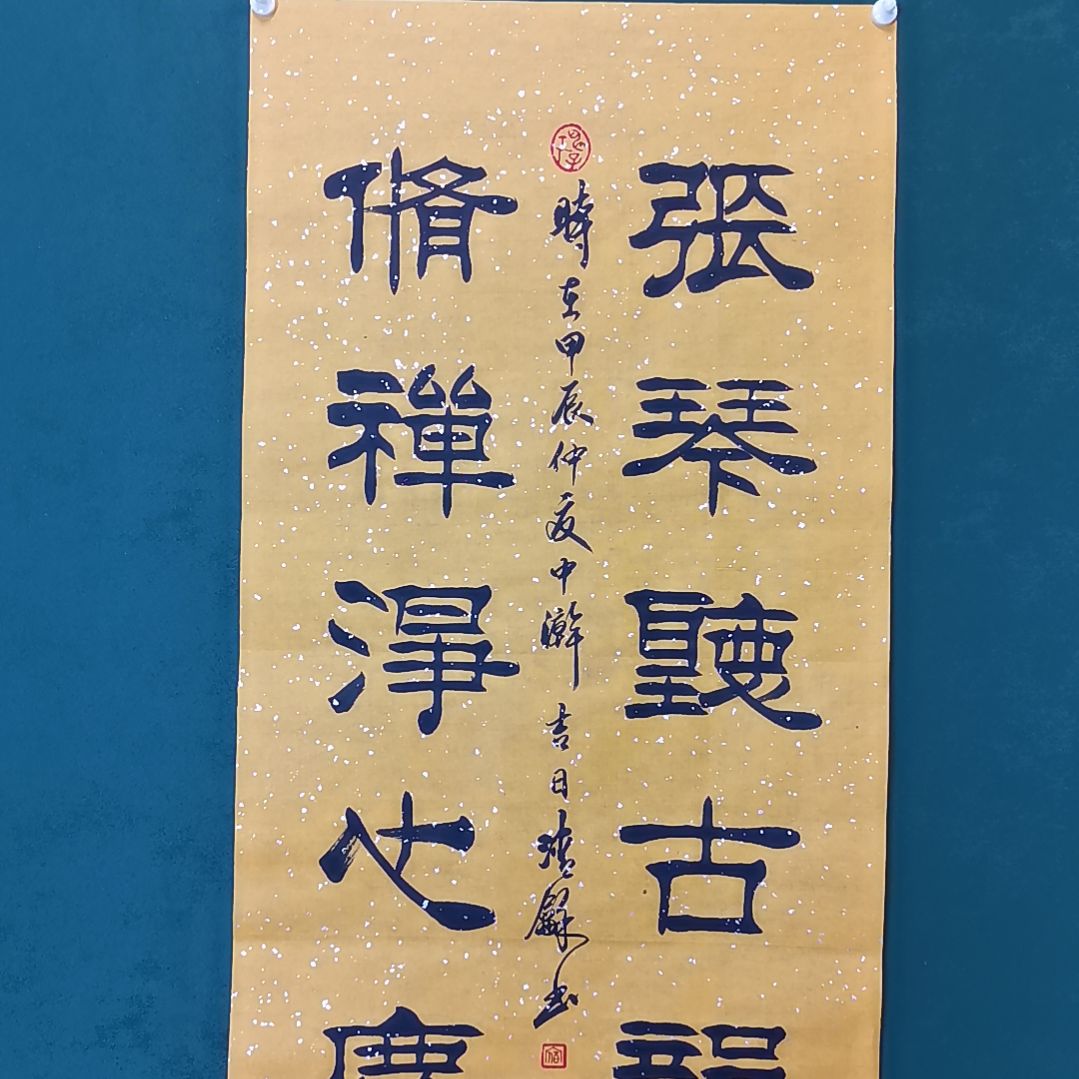 張琴聽古韻
脩禪淨心塵
時在甲辰仲夏中澣吉日
書